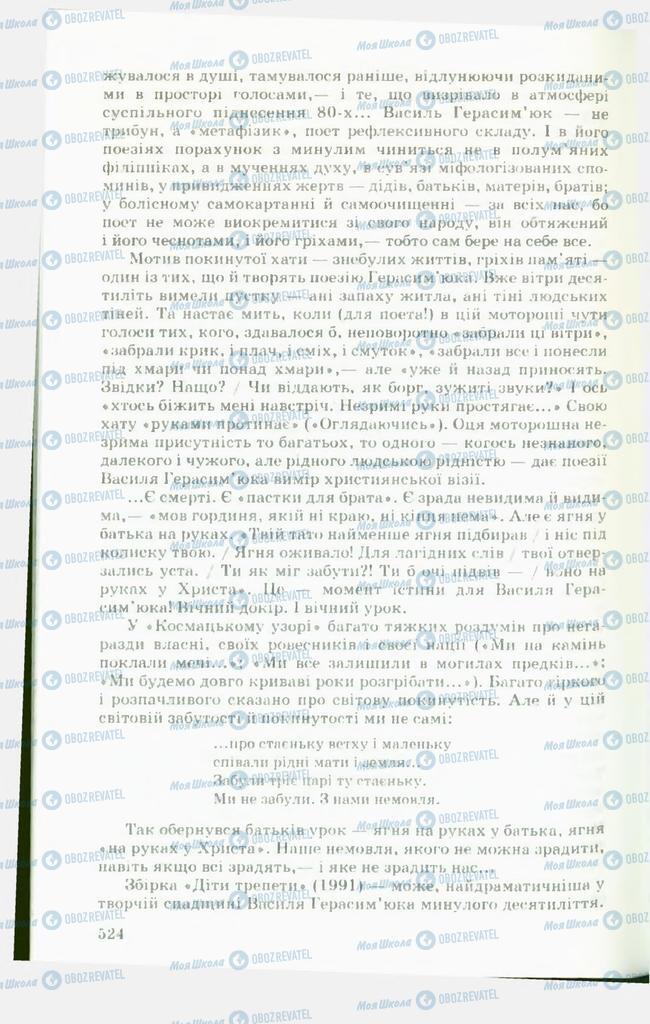 жувалося в душі, тамувалося раніше, відлунюючи розкидани-
ми в просторі голосами,— і те, що визрівало в атмосфері
суспільного піднесення 80-х... Василь Герасим'юк — не
трибун, а «метафізик», поет рефлексивного складу. І в його
поезіях порахунок з минулим чиниться не в полум'яних
філіппіках, а в мученнях духу, в сув'язі міфологізованих спо-
минів, у привидженнях жертв — дідів, батьків, матерів, братів;
у болісному самокартанні й самоочищенні — за всіх нас, бо
поет не може виокремитися зі свого народу, він обтяжений
і його чеснотами, і його гріхами,— тобто сам бере на себе все.
Мотив покинутої хати — знебулих життів, гріхів пам'яті —
один із тих, що й творять поезію Герасим'юка. Вже вітри деся-
тиліть вимели пустку — ані запаху житла, ані тіні людських
тіней. Та настає мить, коли (для поета!) в цій мотороші чути
голоси тих, кого, здавалося б, неповоротно «забрали ці вітри»,
«забрали крик, і плач, і сміх, і смуток», «забрали все і понесли
під хмари чи понад хмари»,— але «уже й назад приносять.
Звідки? Нащо? / Чи віддають, як борг, зужиті звуки?» І ось
«хтось біжить мені навстріч. Незримі руки простягає...» Свою
хату «руками протинає» («Оглядаючись»). Оця моторошна не-
зрима присутність то багатьох, то одного — когось незнаного,
далекого і чужого, але рідного людською рідністю — дає поезії
Василя Герасим'юка вимір християнської візії.
...Є смерті. Є «пастки для брата». Є зрада невидима й види-
ма,— «мов гординя, якій ні краю, ні кінця нема». Але є ягня у
батька на руках. «Твій тато найменше ягня підбирав / і ніс під
колиску твою. / Ягня оживало! Для лагідних слів / твої отвер-
зались уста. / Ти як міг забути?! Ти б очі підвів — / воно на
руках у Христа». Це — момент істини для Василя Гера-
сим'юка! Вічний докір. І вічний урок.
У «Космацькому узорі» багато тяжких роздумів про нега-
разди власні, своїх ровесників і своєї нації («Ми на камінь
поклали мечі...»; «Ми все залишили в могилах предків...»;
«Ми будемо довго криваві роки розгрібати...»). Багато гіркого
і розпачливого сказано про світову покинутість. Але й у цій
світовій забутості й покинутості ми не самі:
...про стаєньку ветху і маленьку
співали рідні мати і земля...
Забули тріє царі ту стаєньку.
Ми не забули. З нами немовля.
Так обернувся батьків урок — ягня на руках у батька, ягня
«на руках у Христа». Наше немовля, якого не можна зрадити,
навіть якщо всі зрадять,— і яке не зрадить нас...
Збірка «Діти трепети» (1991) — може, найдраматичніша у
творчій спадщині Василя Герасим'юка минулого десятиліття.
524